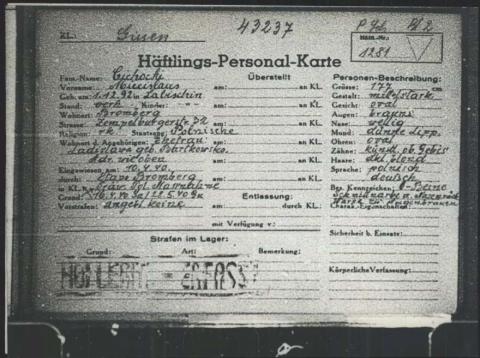 KL.: Gusen 43237 P
Häftl.-Nr.:
1281
Häftlings-Personal-Karte
Fam.-Name: Cichocki
Vorname: Miecislaus
Geb. am: 1.12.92 in Labischin
Stand: verh. Kinder:
Wohnort: Bromberg
Strasse: Zempelburgerstr. 32
Religion: rk. Staatsang.: Polnische
Wohnort d. Angehörigen: Ehefrau
Ladislava geb.
Adr. wie oben
Eingewiesen am: 10.4.40
durch: Stapo Bromberg
in KL.:
Grund:
Vorstrafen: angebl. keine
Überstellt
am: an KL.
am: an KL.
am: an KL.
am: an KL.
am: an KL.
am: an KL.
Entlassung:
am: durch KL.:
mit Verfügung v.:
Personen-Beschreibung:
Grösse: 177 cm
Gestalt: mittelstark
Gesicht: oval
Augen: braun
Nase: wellig
Mund: dünne Lipp.
Ohren: oval
Zähne: künstl. ob. Gebis
Haare: dkl. blond
Sprache: polnisch
deutsch
Bes. Kennzeichen:
Charakt.-Eigenschaften:
Sicherheit b. Einsatz:
Körperliche Verfassung:
Strafen im Lager:
Grund: Art: Bemerkung:
HOLLERITH ERFASST